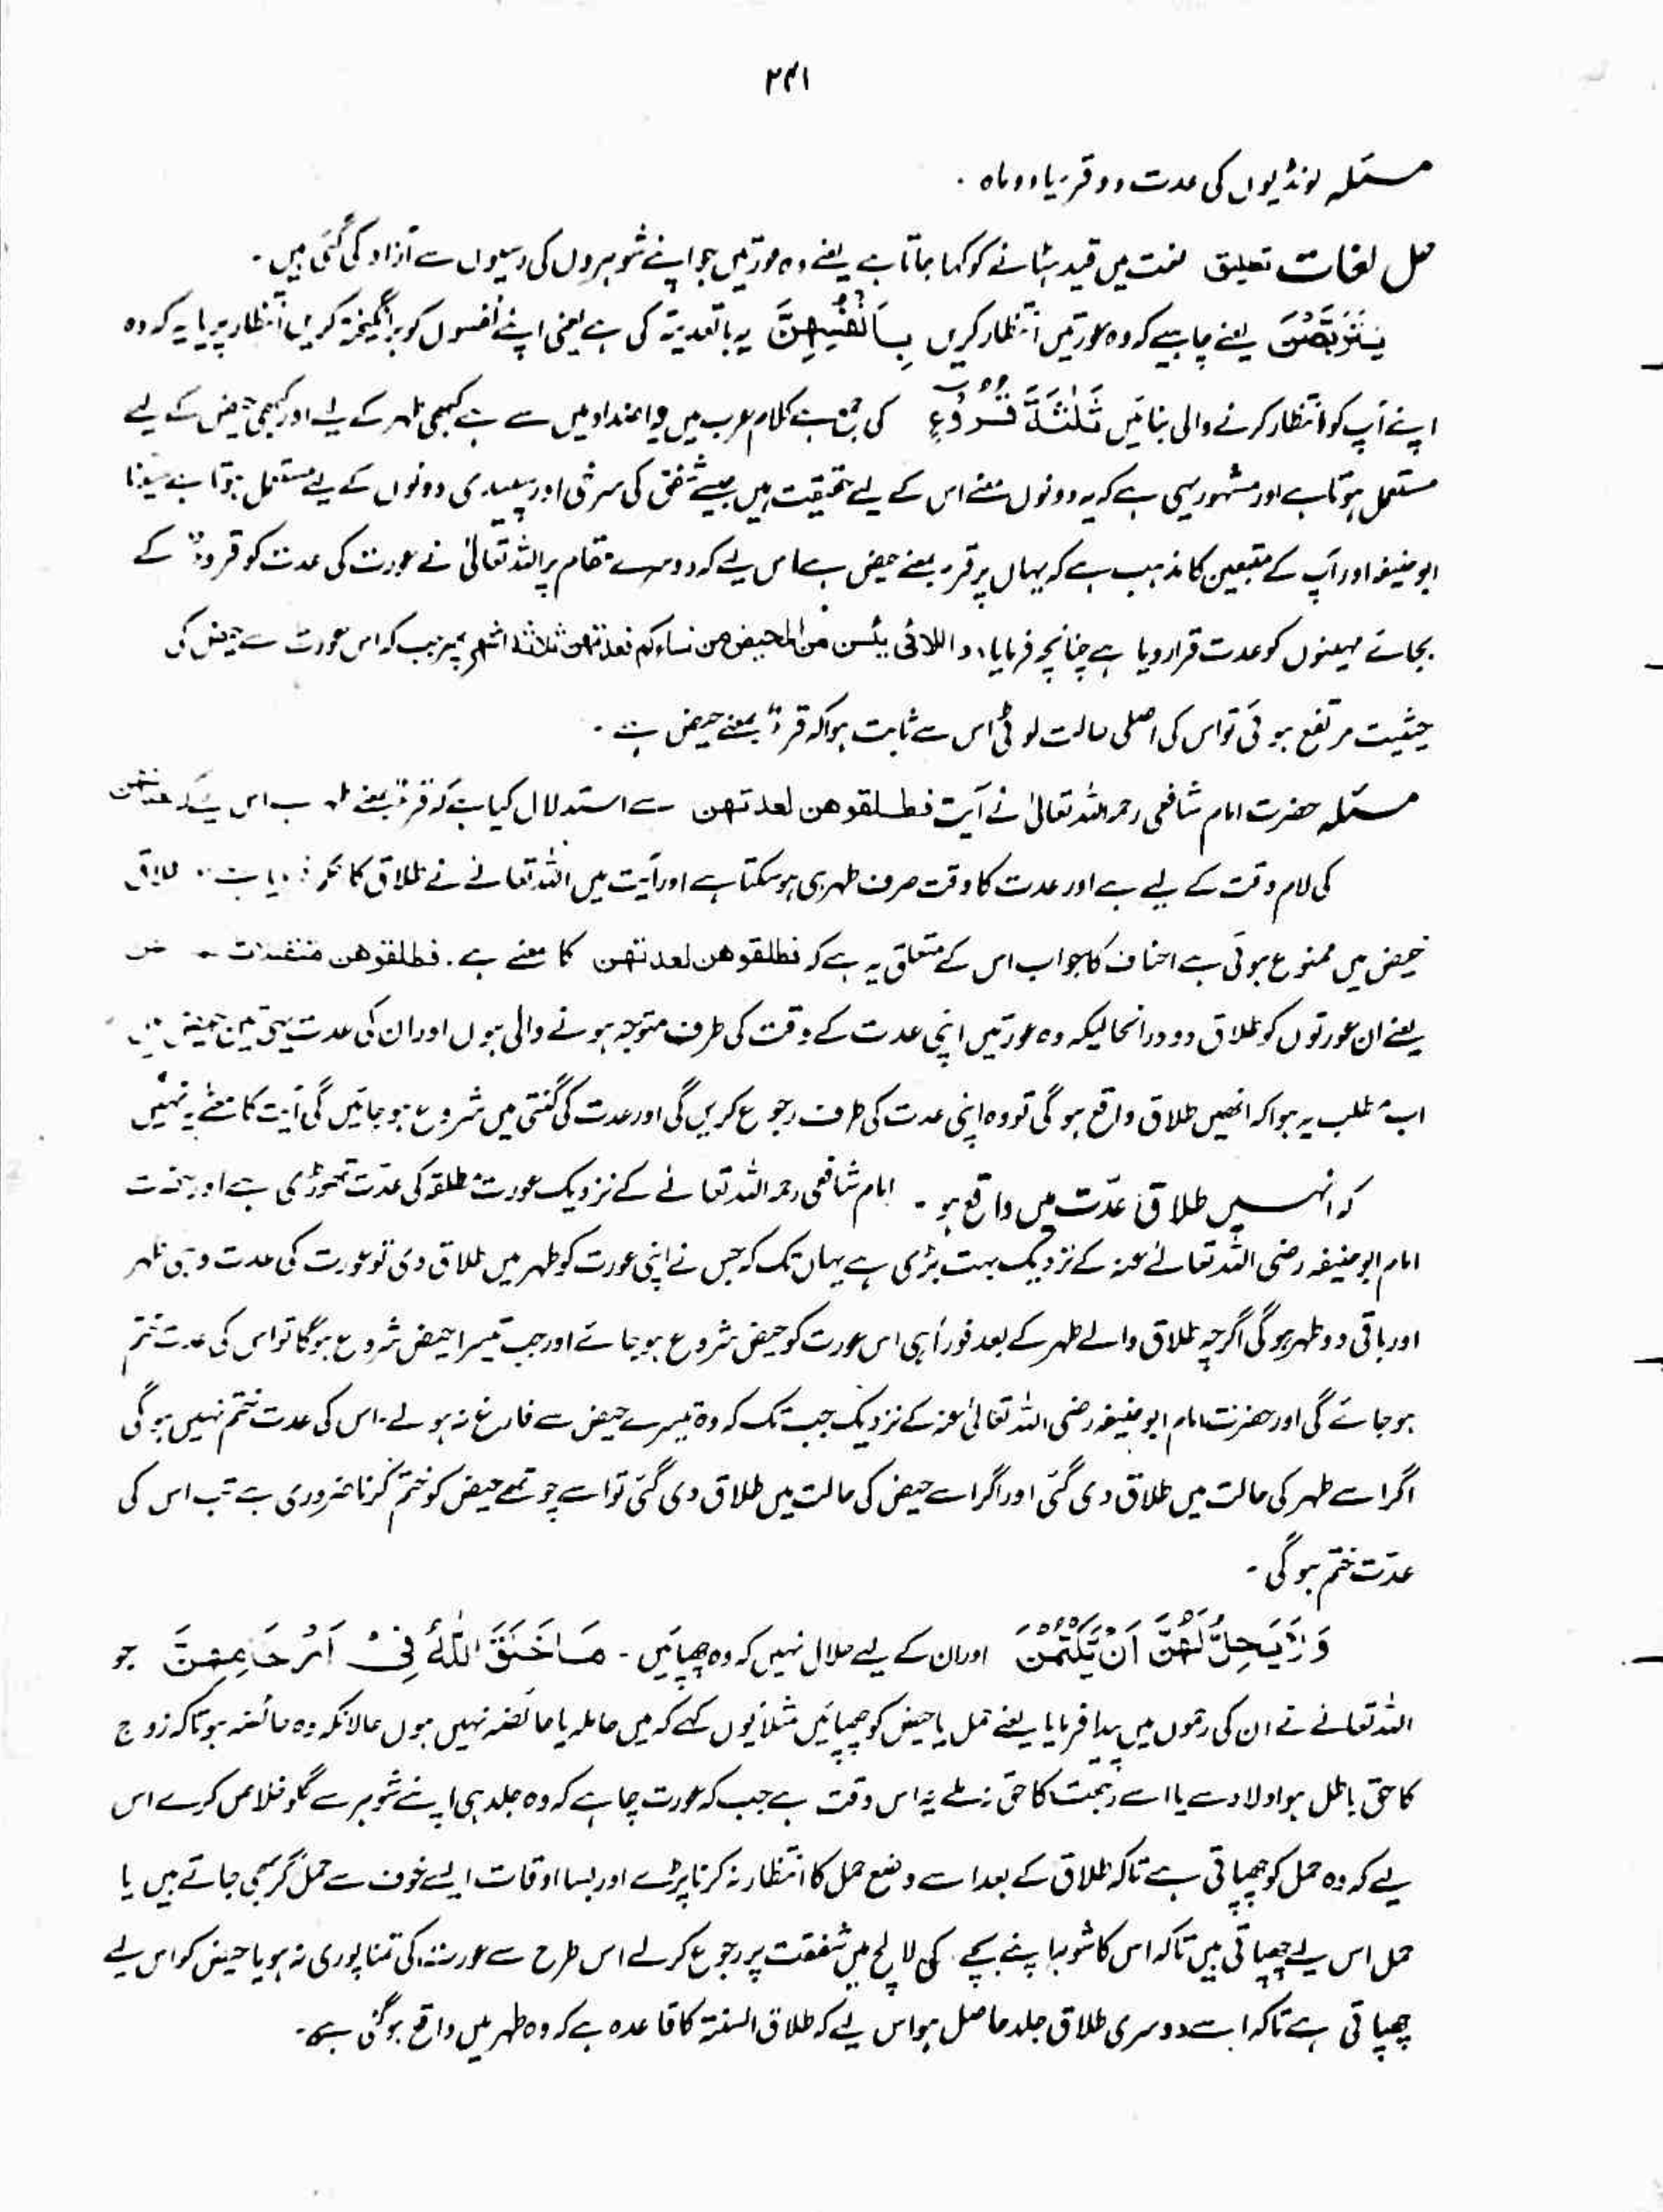 ۲۴۱
مسئلہ لونڈیوں کی عدت دو قرء یا دو ماہ ۔
حل لغات تطلیق لغت میں قید ہٹانے کو کہا جاتا ہے یعنے وہ عورتیں جو اپنے شوہروں کی رسیوں سے آزاد کی گئی ہیں ۔
یَتَرَبَّصْنَ یعنے چاہیے کہ وہ عورتیں انتظار کریں بِاَنْفُسِهِنَّ یہ با تعدیۃ کی ہے یعنی اپنے نفسوں کو برانگیختہ کریں انتظار پر یا یہ کہ وہ
اپنے آپ کو انتظار کرنے والی بنائیں ثَلٰثَةَ قُرُوْٓءٍ کی جمع ہے کلام عرب میں اضداد میں سے ہے کبھی طہر کے لیے اور کبھی حیض کے لیے
مستعمل ہوتا ہے اور مشہور یہی ہے کہ یہ دونوں معنے اس کے لیے حقیقت ہیں جیسے شفق کی سرخی اور سپیدی دونوں کے لیے مستعمل ہوتا ہے سیدنا
ابو حنیفہ اور آپ کے متبعین کا مذہب ہے کہ یہاں پر قرء بمعنے حیض ہے اس لیے کہ دوسرے مقام پر اللہ تعالیٰ نے عورت کی عدت کو قروء کے
بجائے مہینوں کو عدت قرار دیا ہے چنانچہ فرمایا، و اللائی یئسن من المحیض من نساءکم فعدتهن ثلاثة اشهر پھر جب کہ اس عورت سے حیض کی
حیثیت مرتفع ہوئی تو اس کی اصلی حالت لوٹی اس سے ثابت ہوا کہ قرء بمعنے حیض ہے ۔
مسئلہ حضرت امام شافعی رحمہ اللہ تعالیٰ نے آیت فطلقوهن لعدتهن سے استدلال کیا ہے کہ قرء بمعنے طہر ہے اس لیے کہ عدتهن
کی لام وقت کے لیے ہے اور عدت کا وقت صرف طہر ہی ہو سکتا ہے اور آیت میں اللہ تعالےٰ نے طلاق کا حکم طلاق
حیض میں ممنوع ہوتی ہے احناف کا جواب اس کے متعلق یہ ہے کہ فطلقوهن لعدتهن کا معنے ہے ۔ فطلقوهن
یعنے ان عورتوں کو طلاق دو درانحالیکہ وہ عورتیں اپنی عدت کے وقت کی طرف متوجہ ہونے والی ہوں اور ان کی عدت یہی تین حیض ہیں
اب مطلب یہ ہوا کہ انھیں طلاق واقع ہو گی تو وہ اپنی عدت کی طرف رجوع کریں گی اور عدت کی گنتی میں شروع ہو جائیں گی آیت کا معنے یہ نہیں
کہ انہیں طلاق عدّت میں واقع ہو ۔ امام شافعی رحمہ اللہ تعالےٰ کے نزدیک عورت مطلقہ کی عدّت تھوڑی ہے اور حضرت
امام ابو حنیفہ رضی اللہ تعالےٰ عنہ کے نزدیک بہت بڑی ہے یہاں تک کہ جس نے اپنی عورت کو طہر میں طلاق دی تو عورت کی عدت وہی طہر
اور باقی دو طہر ہو گی اگرچہ طلاق والے طہر کے بعد فوراً ہی اس عورت کو حیض شروع ہو جائے اور جب تیسرا حیض شروع ہو گا تو اس کی عدت ختم
ہو جائے گی اور حضرت امام ابو حنیفہ رضی اللہ تعالیٰ عنہ کے نزدیک جب تک کہ وہ تیسرے حیض سے فارغ نہ ہولے ۔ اس کی عدت ختم نہیں ہو گی
اگر اسے طہر کی حالت میں طلاق دی گئی اور اگر اسے حیض کی حالت میں طلاق دی گئی تو اسے چوتھے حیض کو ختم کرنا ضروری ہے تب اس کی
عدّت ختم ہو گی ۔
وَلَا یَحِلُّ لَهُنَّ اَنْ یَّکْتُمْنَ اور ان کے لیے حلال نہیں کہ وہ چھپائیں ۔ مَا خَلَقَ اللّٰهُ فِیْٓ اَرْحَامِهِنَّ جو
اللہ تعالےٰ نے ان کی رحموں میں پیدا فرمایا یعنے حمل یا حیض کو چھپائیں مثلاً یوں کہے کہ میں حاملہ یا حائضہ نہیں ہوں حالانکہ وہ حائضہ ہو تاکہ زوج
کا حق باطل ہو اولاد سے یا اسے رجعت کا حق نہ ملے یہ اس وقت ہے جب کہ عورت چاہے کہ وہ جلد ہی اپنے شوہر سے گلو خلاصی کرے اس
لیے کہ وہ حمل کو چھپاتی ہے تاکہ طلاق کے بعد اسے وضع حمل کا انتظار نہ کرنا پڑے اور بسا اوقات ایسے خوف سے حمل گر بھی جاتے ہیں یا
حمل اس لیے چھپاتی ہیں تاکہ اس کا شوہر اپنے بچے کی لالچ میں شفقت پر رجوع کر لے اس طرح سے عورت کی تمنا پوری نہ ہو یا حیض کو اس لیے
چھپاتی ہے تاکہ اسے دوسری طلاق جلد حاصل ہو اس لیے کہ طلاق السنۃ کا قاعدہ ہے کہ وہ طہر میں واقع ہو گئی ہے ۔